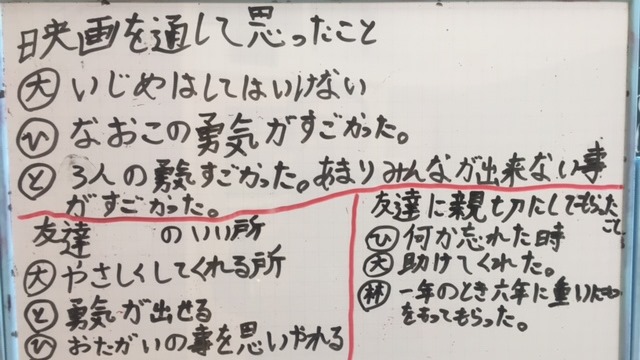 映画を通して思ったこと
大 いじめはしてはいけない
ひ なおこの勇気がすごかった。
と 3人の勇気すごかった。あまりみんなが出来ない事
がすごかった。
友達 のいい所
大 やさしくしてくれる所
と 勇気が出せる
ひ おたがいの事を思いやれる
友達に親切にしてもらった
こと
ひ 何か忘れた時
大 助けてくれた。
林 一年のとき六年に重いにもつ
をもってもらった。